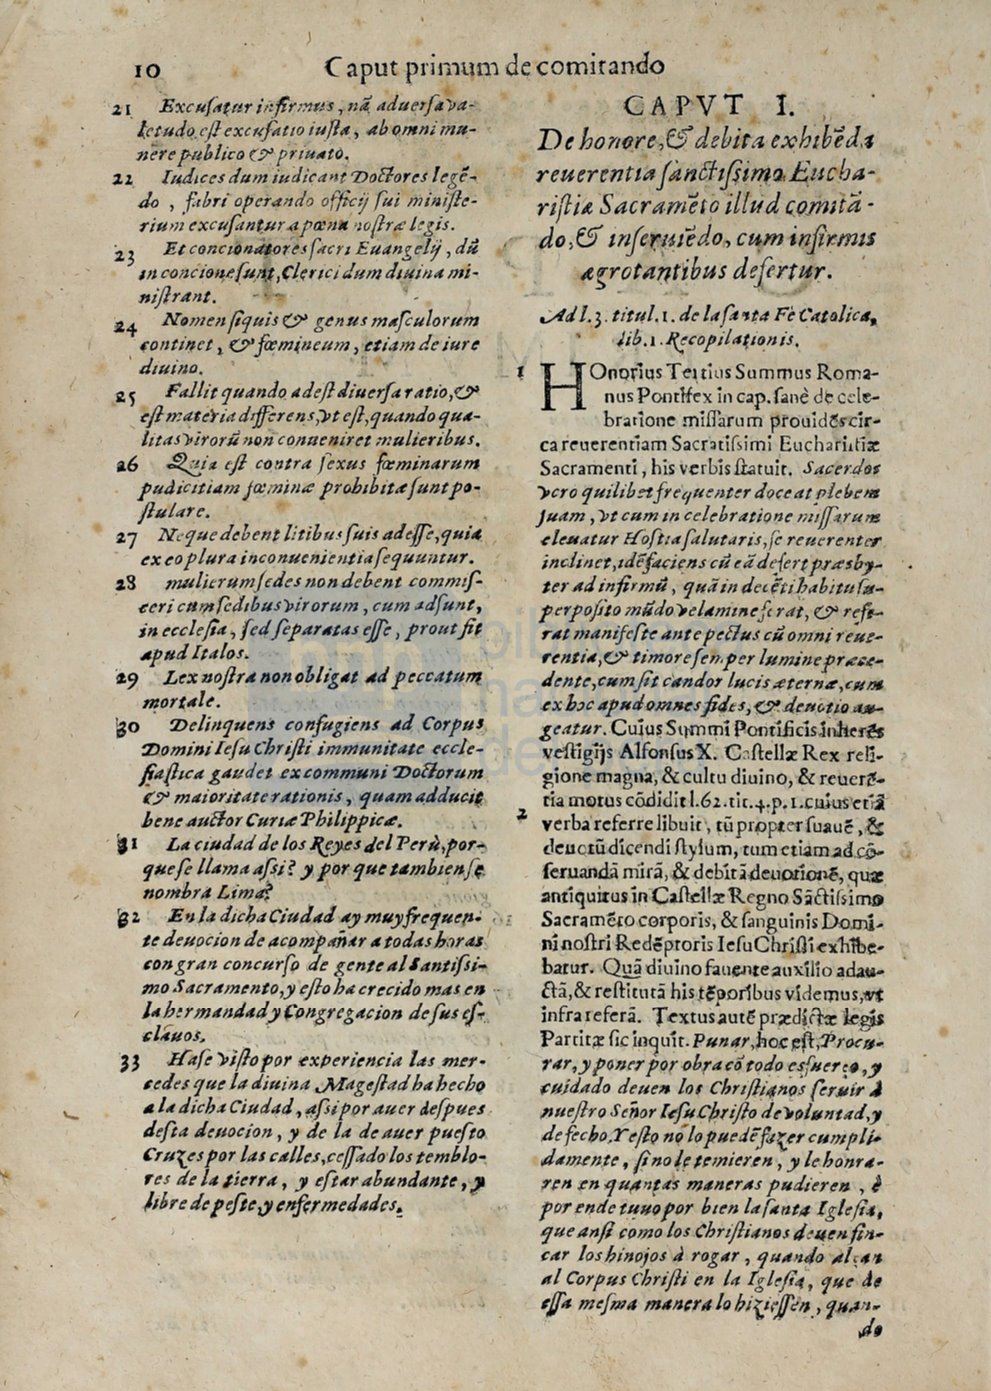 10 Caput primum de comitando
21 Excusatur infirmus, nã aduersa va-
letudo est excusatio iusta, ab omni mu-
nere publico & priuato.
22 Iudices dum iudicant Doctores legẽ-
do, fabri operando officij sui ministe-
rium excusantur a pœna nostræ legis.
23 Et concionatores sacri Euangelij, dũ
in concione sunt, Clerici dum diuina mi-
nistrant.
24 Nomen siquis & genus masculorum
continet, & fœmineum, etiam de iure
diuino.
25 Fallit quando adest diuersa ratio, &
est materia differens, vt est, quando qua-
litas virorũ non conueniret mulieribus.
26 Quia est contra sexus fœminarum
pudicitiam fœminæ prohibitæ sunt po-
stulare.
27 Neque debent litibus suis adesse, quia
ex eo plura inconuenientia sequuntur.
28 mulierum sedes non debent commis-
ceri cum sedibus virorum, cum adsunt,
in ecclesia, sed separatas esse, prout fit
apud Italos.
29 Lex nostra non obligat ad peccatum
mortale.
30 Delinquens confugiens ad Corpus
Domini Iesu Christi immunitate eccle-
siastica gaudet ex communi Doctorum
& maioritate rationis, quam adducit
bene auctor Curiæ Philippicæ.
31 La ciudad de los Reyes del Perù, por-
que se llama assi? y por que tambien se
nombra Lima?
32 En la dicha Ciudad ay muy frequen-
te deuocion de acompañar a todas horas
con gran concurso de gente al Santissi-
mo Sacramento, y esto ha crecido mas en
la hermandad y Congregacion de sus es-
clauos.
33 Hase visto por experiencia las mer-
cedes que la diuina Magestad ha hecho
a la dicha Ciudad, assi por auer despues
desta deuocion, y de la de auer puesto
Cruzes por las calles, cessado los temblo-
res de la tierra, y estar abundante, y
libre de peste, y enfermedades.
CAPVT I.
De honore, & debita exhibẽda
reuerentia sanctissimo Eucha-
ristiæ Sacramẽto illud comitã-
do, & inseruiẽdo, cum infirmis
ægrotantibus defertur.
Ad l. 3. titul. 1. de la santa Fè Catolica,
lib. 1. Recopilationis.
1 HOnorius Tertius Summus Roma-
nus Pontifex in cap. sanè de cele-
bratione missarum prouidẽs cir-
ca reuerentiam Sacratissimi Eucharistiæ
Sacramenti, his verbis statuit. Sacerdos
vero quilibet frequenter doceat plebem
suam, vt cum in celebratione missarum
eleuatur Hostia salutaris, se reuerenter
inclinet, idẽ faciens cũ eã defert præsby-
ter ad infirmũ, quã in decẽti habitu su-
perposito mũdo velamine ferat, & refe-
rat manifeste ante pectus cũ omni reue-
rentia, & timore semper lumine præce-
dente, cum sit candor lucis æternæ, cum
ex hoc apud omnes fides, & deuotio au-
geatur. Cuius Summi Pontificis inherẽs
vestigijs Alfonsus X. Castellæ Rex reli-
gione magna, & cultu diuino, & reuerẽ-
tia motus cõdidit l. 62. tit. 4. p. 1. cuius etiã
2 verba referre libuit, tũ propter suauẽ, &
deuotũ dicendi stylum, tum etiam ad cõ-
seruandã mirã, & debitã deuotionẽ, quæ
antiquitus in Castellæ Regno Sãctissimo
Sacramẽto corporis, & sanguinis Domi-
ni nostri Redẽptoris Iesu Christi exhibe-
batur. Quã diuino fauente auxilio adau-
ctã, & restitutã his tẽporibus videmus, vt
infra referã. Textus autẽ prædictæ legis
Partitæ sic inquit. Punar, hoc est, Procu-
rar, y poner por obra cõ todo esfuerço, y
cuidado deuen los Christianos seruir à
nuestro Señor Iesu Christo de voluntad, y
de fecho. Y esto no lo puedẽ fazer cumpli-
damente, si no le temieren, y le honra-
ren en quantas maneras pudieren, è
por ende tuuo por bien la santa Iglesia,
que ansi como los Christianos deuen fin-
car los hinojos à rogar, quando alçan
al Corpus Christi en la Iglesia, que de
essa mesma manera lo hiziessen, quan-
do